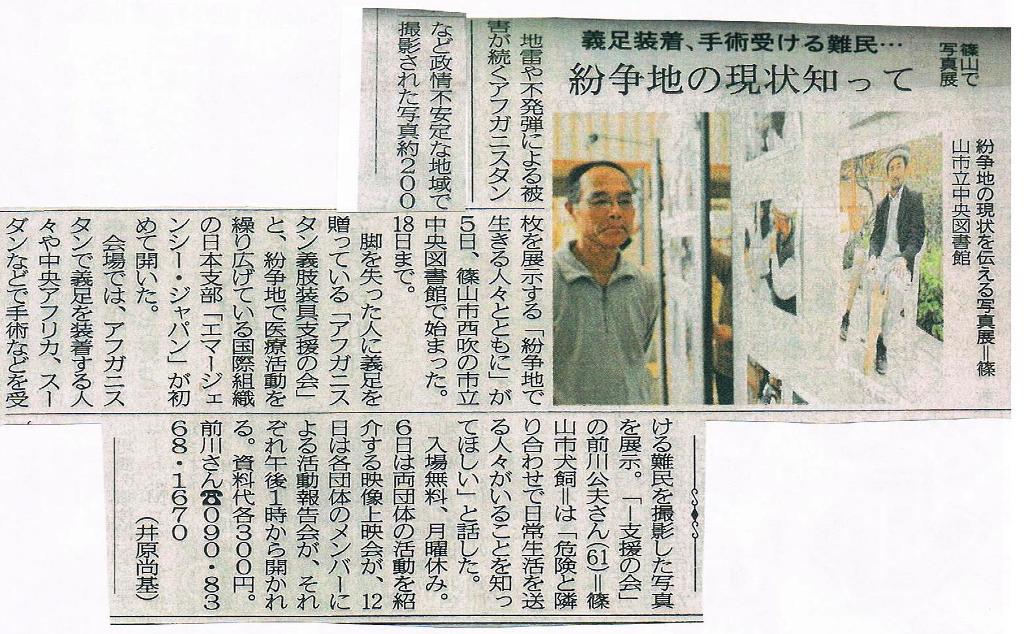 篠山で
写真展
義足装着、手術受ける難民…
紛争地の現状知って
紛争地の現状を伝える写真展＝篠
山市立中央図書館
地雷や不発弾による被
害が続くアフガニスタン
など政情不安定な地域で
撮影された写真約２００
枚を展示する「紛争地で
生きる人々とともに」が
５日、篠山市西吹の市立
中央図書館で始まった。
18日まで。
脚を失った人に義足を
贈っている「アフガニス
タン義肢装具支援の会」
と、紛争地で医療活動を
繰り広げている国際組織
の日本支部「エマージェ
ンシー・ジャパン」が初
めて開いた。
会場では、アフガニス
タンで義足を装着する人
々や中央アフリカ、スー
ダンなどで手術などを受
ける難民を撮影した写真
を展示。「―支援の会」
の前川公夫さん（61）＝篠
山市犬飼＝は「危険と隣
り合わせで日常生活を送
る人々がいることを知っ
てほしい」と話した。
入場無料、月曜休み。
６日は両団体の活動を紹
介する映像上映会が、12
日は各団体のメンバーに
よる活動報告会が、それ
ぞれ午後１時から開かれ
る。資料代各３００円。
前川さん☎０９０・８３
６８・１６７０
（井原尚基）